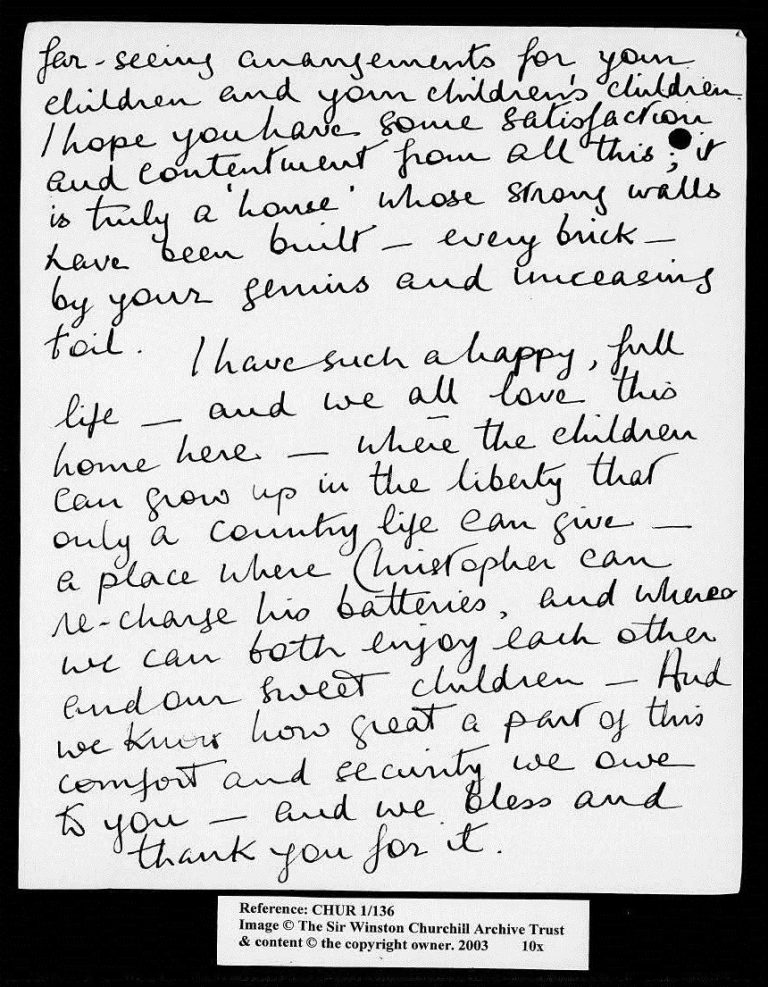 far-seeing arrangements for your
children and your children's children.
I hope you have some satisfaction
and contentment from all this; it
is truly a 'house' whose strong walls
have been built — every brick —
by your genius and unceasing
toil. I have such a happy, full
life — and we all love this
home here — where the children
can grow up in the liberty that
only a country life can give —
a place where Christopher can
re-charge his batteries, and where
we can both enjoy each other
and our sweet children — And
we know how great a part of this
comfort and security we owe
to you — and we bless and
thank you for it.
Reference: CHUR 1/136
Image © The Sir Winston Churchill Archive Trust
& content © the copyright owner. 2003 10x